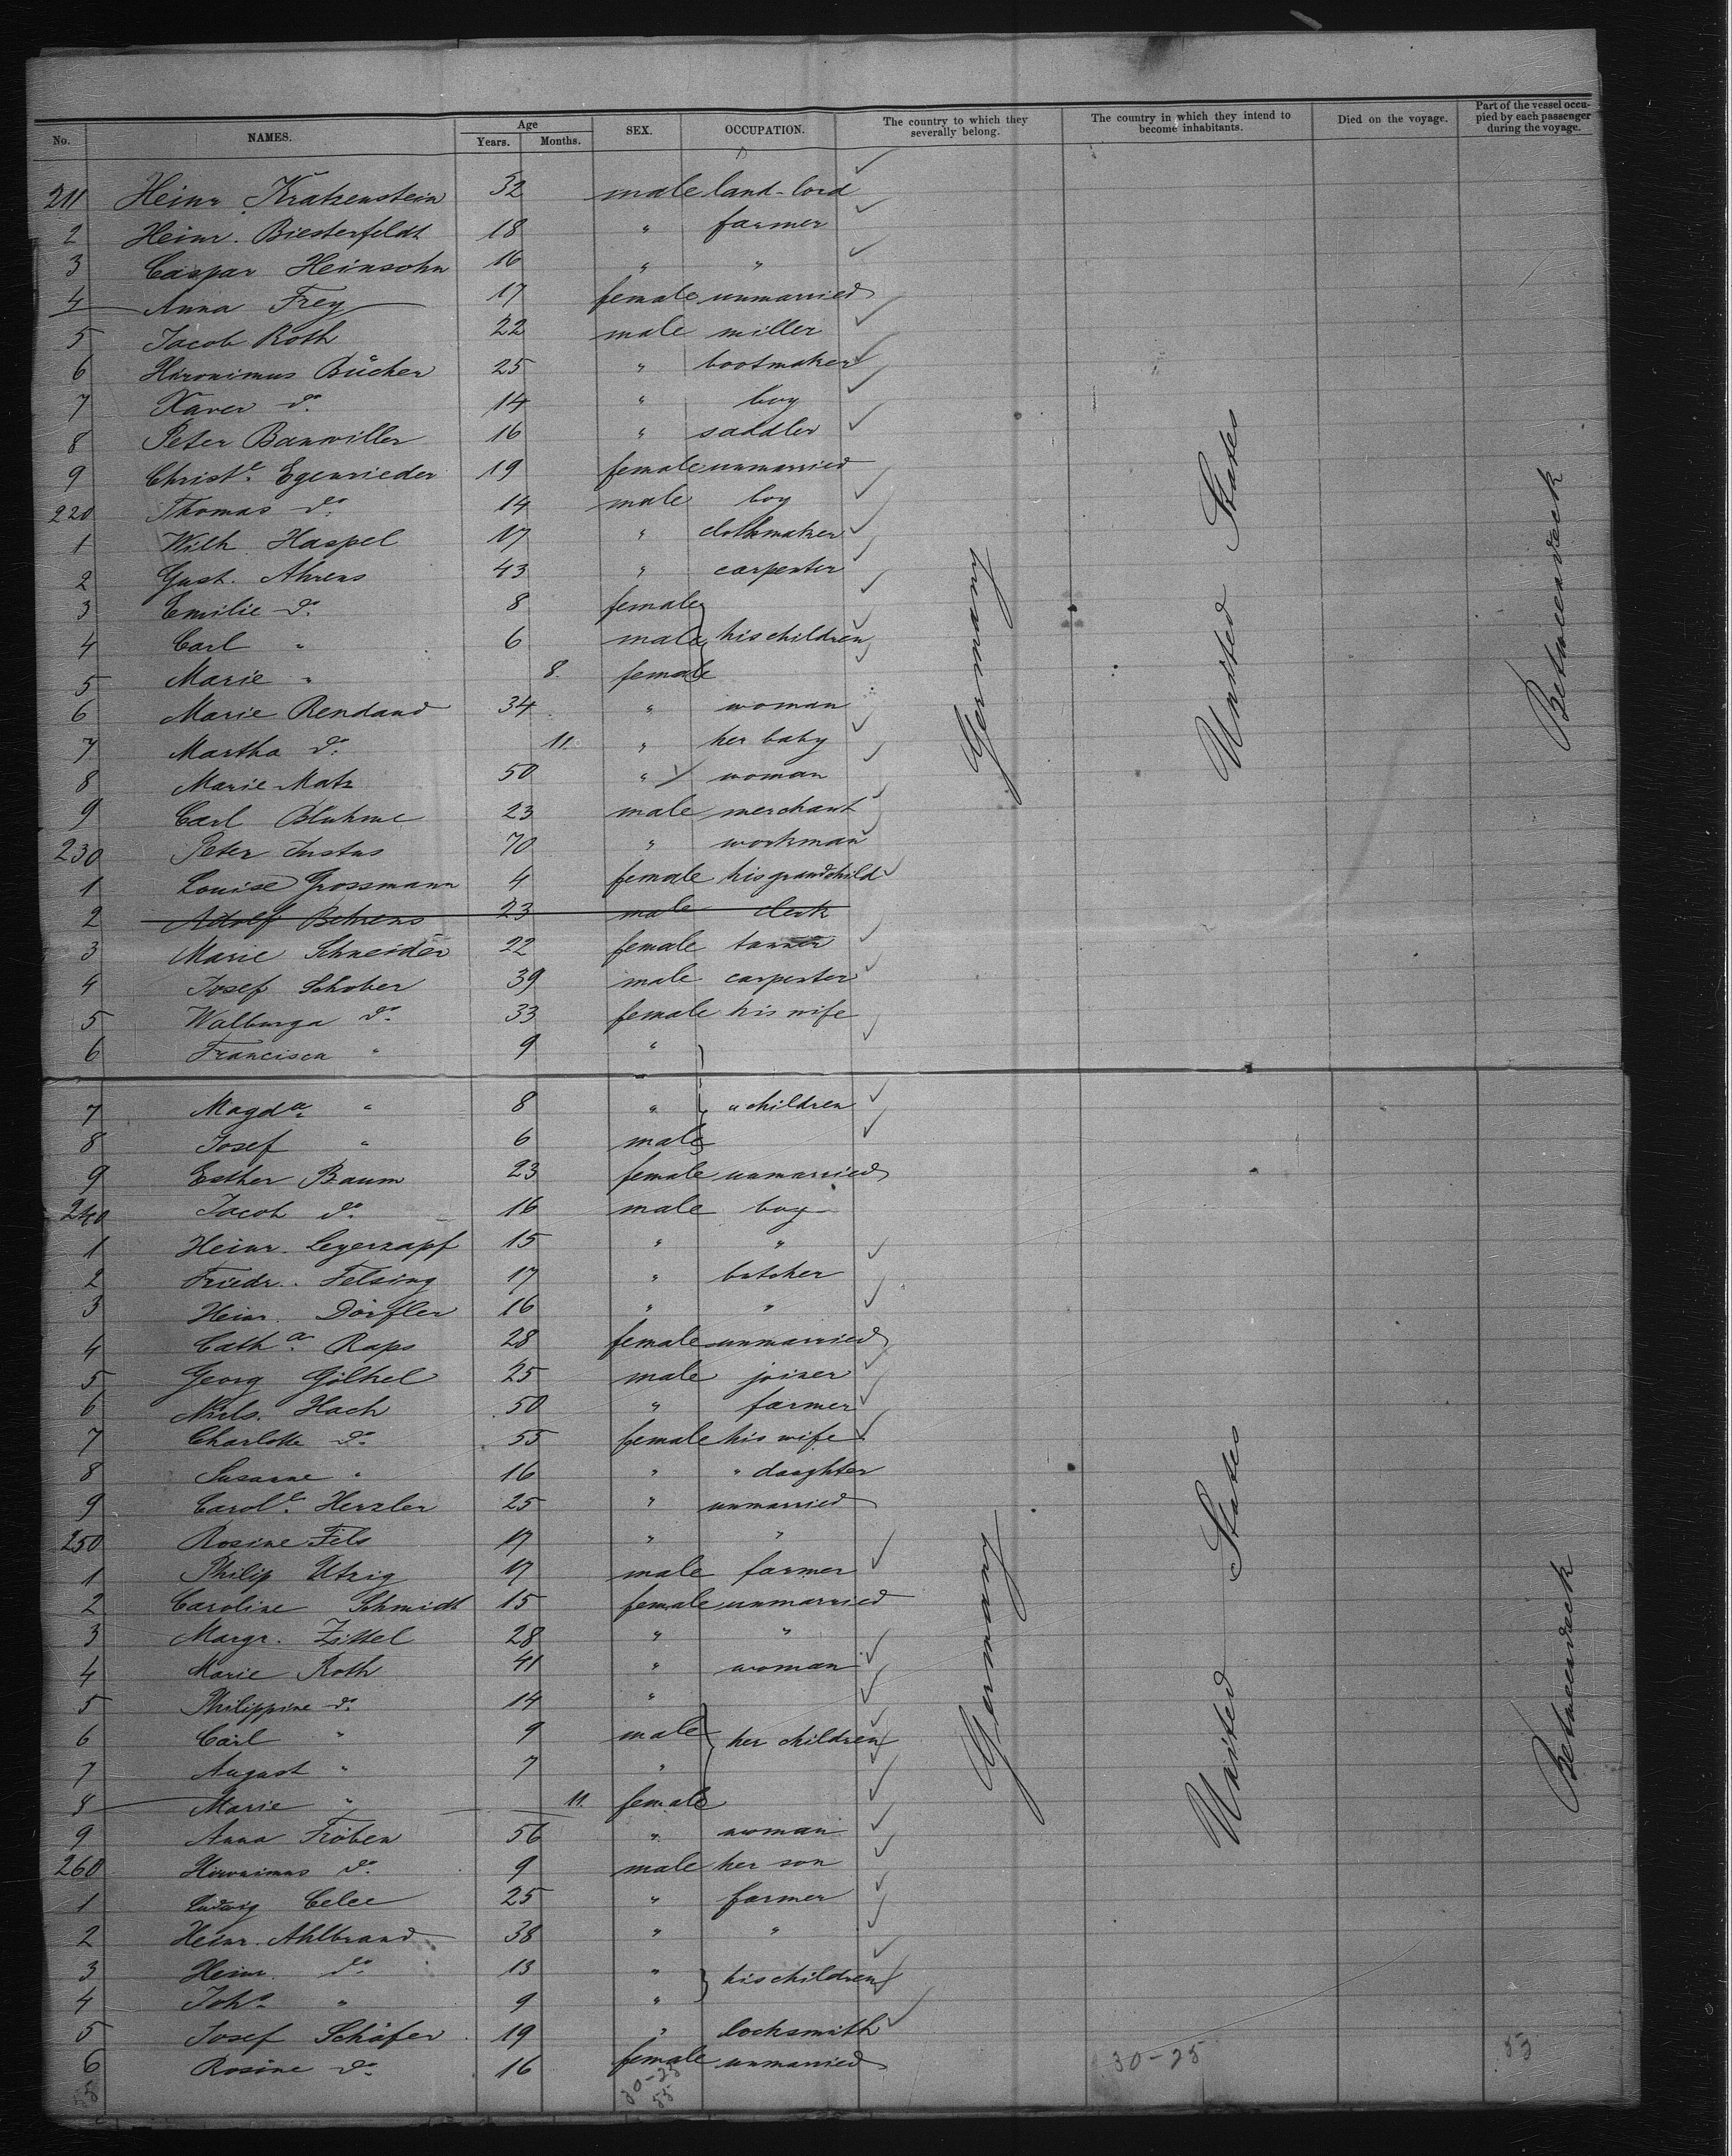 No. NAMES. Age Years. Months. SEX. OCCUPATION. The country to which they severally belong. The country in which they intend to become inhabitants. Died on the voyage. Part of the vessel occupied by each passenger during the voyage.
211 Heinr. Kratzenstein 32 male land-lord
2 Heinr. Biesterfeldt 18 " farmer
3 Caspar Heinsohn 16 " "
4 Anna Frey 17 female unmarried
5 Jacob Roth 22 male miller
6 Hieronimus Bücher 25 " bootmaker
7 Xaver do. 14 " boy
8 Peter Banwiller 16 " saddler
9 Christe. Egenrieder 19 female unmarried
220 Thomas do. 14 male boy
1 Wilh. Haspel 17 " clothmaker
2 Gust. Ahrens 43 " carpenter
3 Emilie do. 8 female
4 Carl " 6 male his children
5 Marie " 8. female
6 Marie Rendand 34 " woman
7 Martha do. 11. " her baby
8 Marie Matz 50 " woman
9 Carl Bluhme 23 male merchant
230 Peter Justus 70 " workman
1 Louise Grossmann 4 female his grandchild
2 Adolf Behrens 23 male clerk
3 Marie Schneider 22 female tanner
4 Josef Schober 39 male carpenter
5 Walburga do. 33 female his wife
6 Francisca " 9 "
7 Magda. " 8 " " children
8 Josef " 6 male
9 Esther Baum 23 female unmarried
240 Jacob do. 16 male boy
1 Heinr. Leyerzapf 15 " "
2 Friedr. Felsing 17 " butcher
3 Heinr. Dörfler 16 " "
4 Catha. Raps 28 female unmarried
5 Georg Gölkel 25 male joiner
6 Niels. Hach 50 " farmer
7 Charlotte do. 55 female his wife
8 Susanne " 16 " " daughter
9 Carole. Herzler 25 " unmarried
250 Rosine Fels 17 " "
1 Philip Utzig 17 male farmer
2 Caroline Schmidt 15 female unmarried
3 Margr. Zittel 28 " "
4 Marie Roth 41 " woman
5 Philippine do. 14 "
6 Carl " 9 male her children
7 August " 7 "
8 Marie " 11. female
9 Anna Fröben 56 " woman
260 Hieronimus do. 9 male her son
1 Ludwig Celee 25 " farmer
2 Heinr. Ahlbrand 38 " "
3 Heinr. do. 13 " his children
4 Joh. " 9 "
5 Josef Schäfer 19 " locksmith
6 Rosine do. 16 female unmarried
Germany
United States
Betweendeck
Germany
United States
Betweendeck
30-25
55
30-25